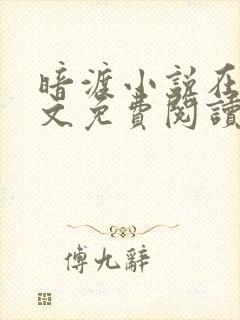 暗渡小説在
文免費閱讀
傅九辭